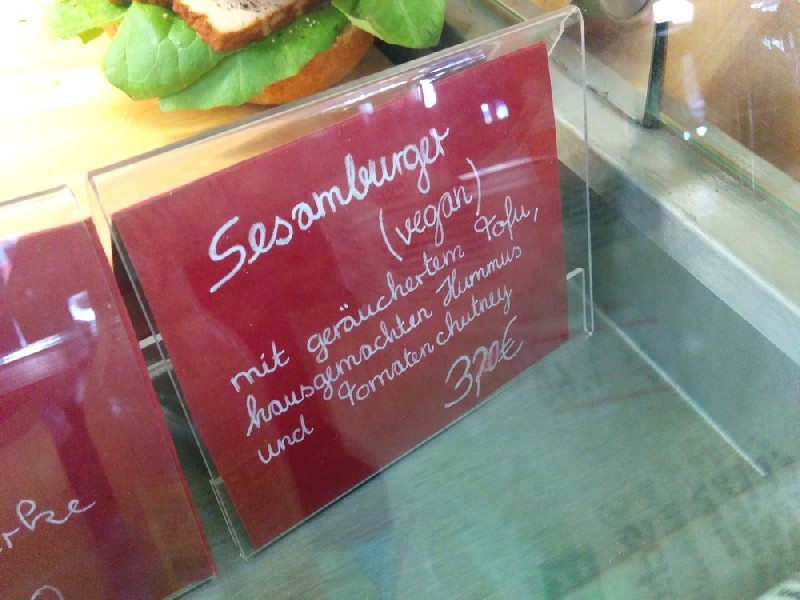 Sesamburger
(vegan)
mit geräuchertem Tofu,
hausgemachten Hummus
und Tomatenchutney